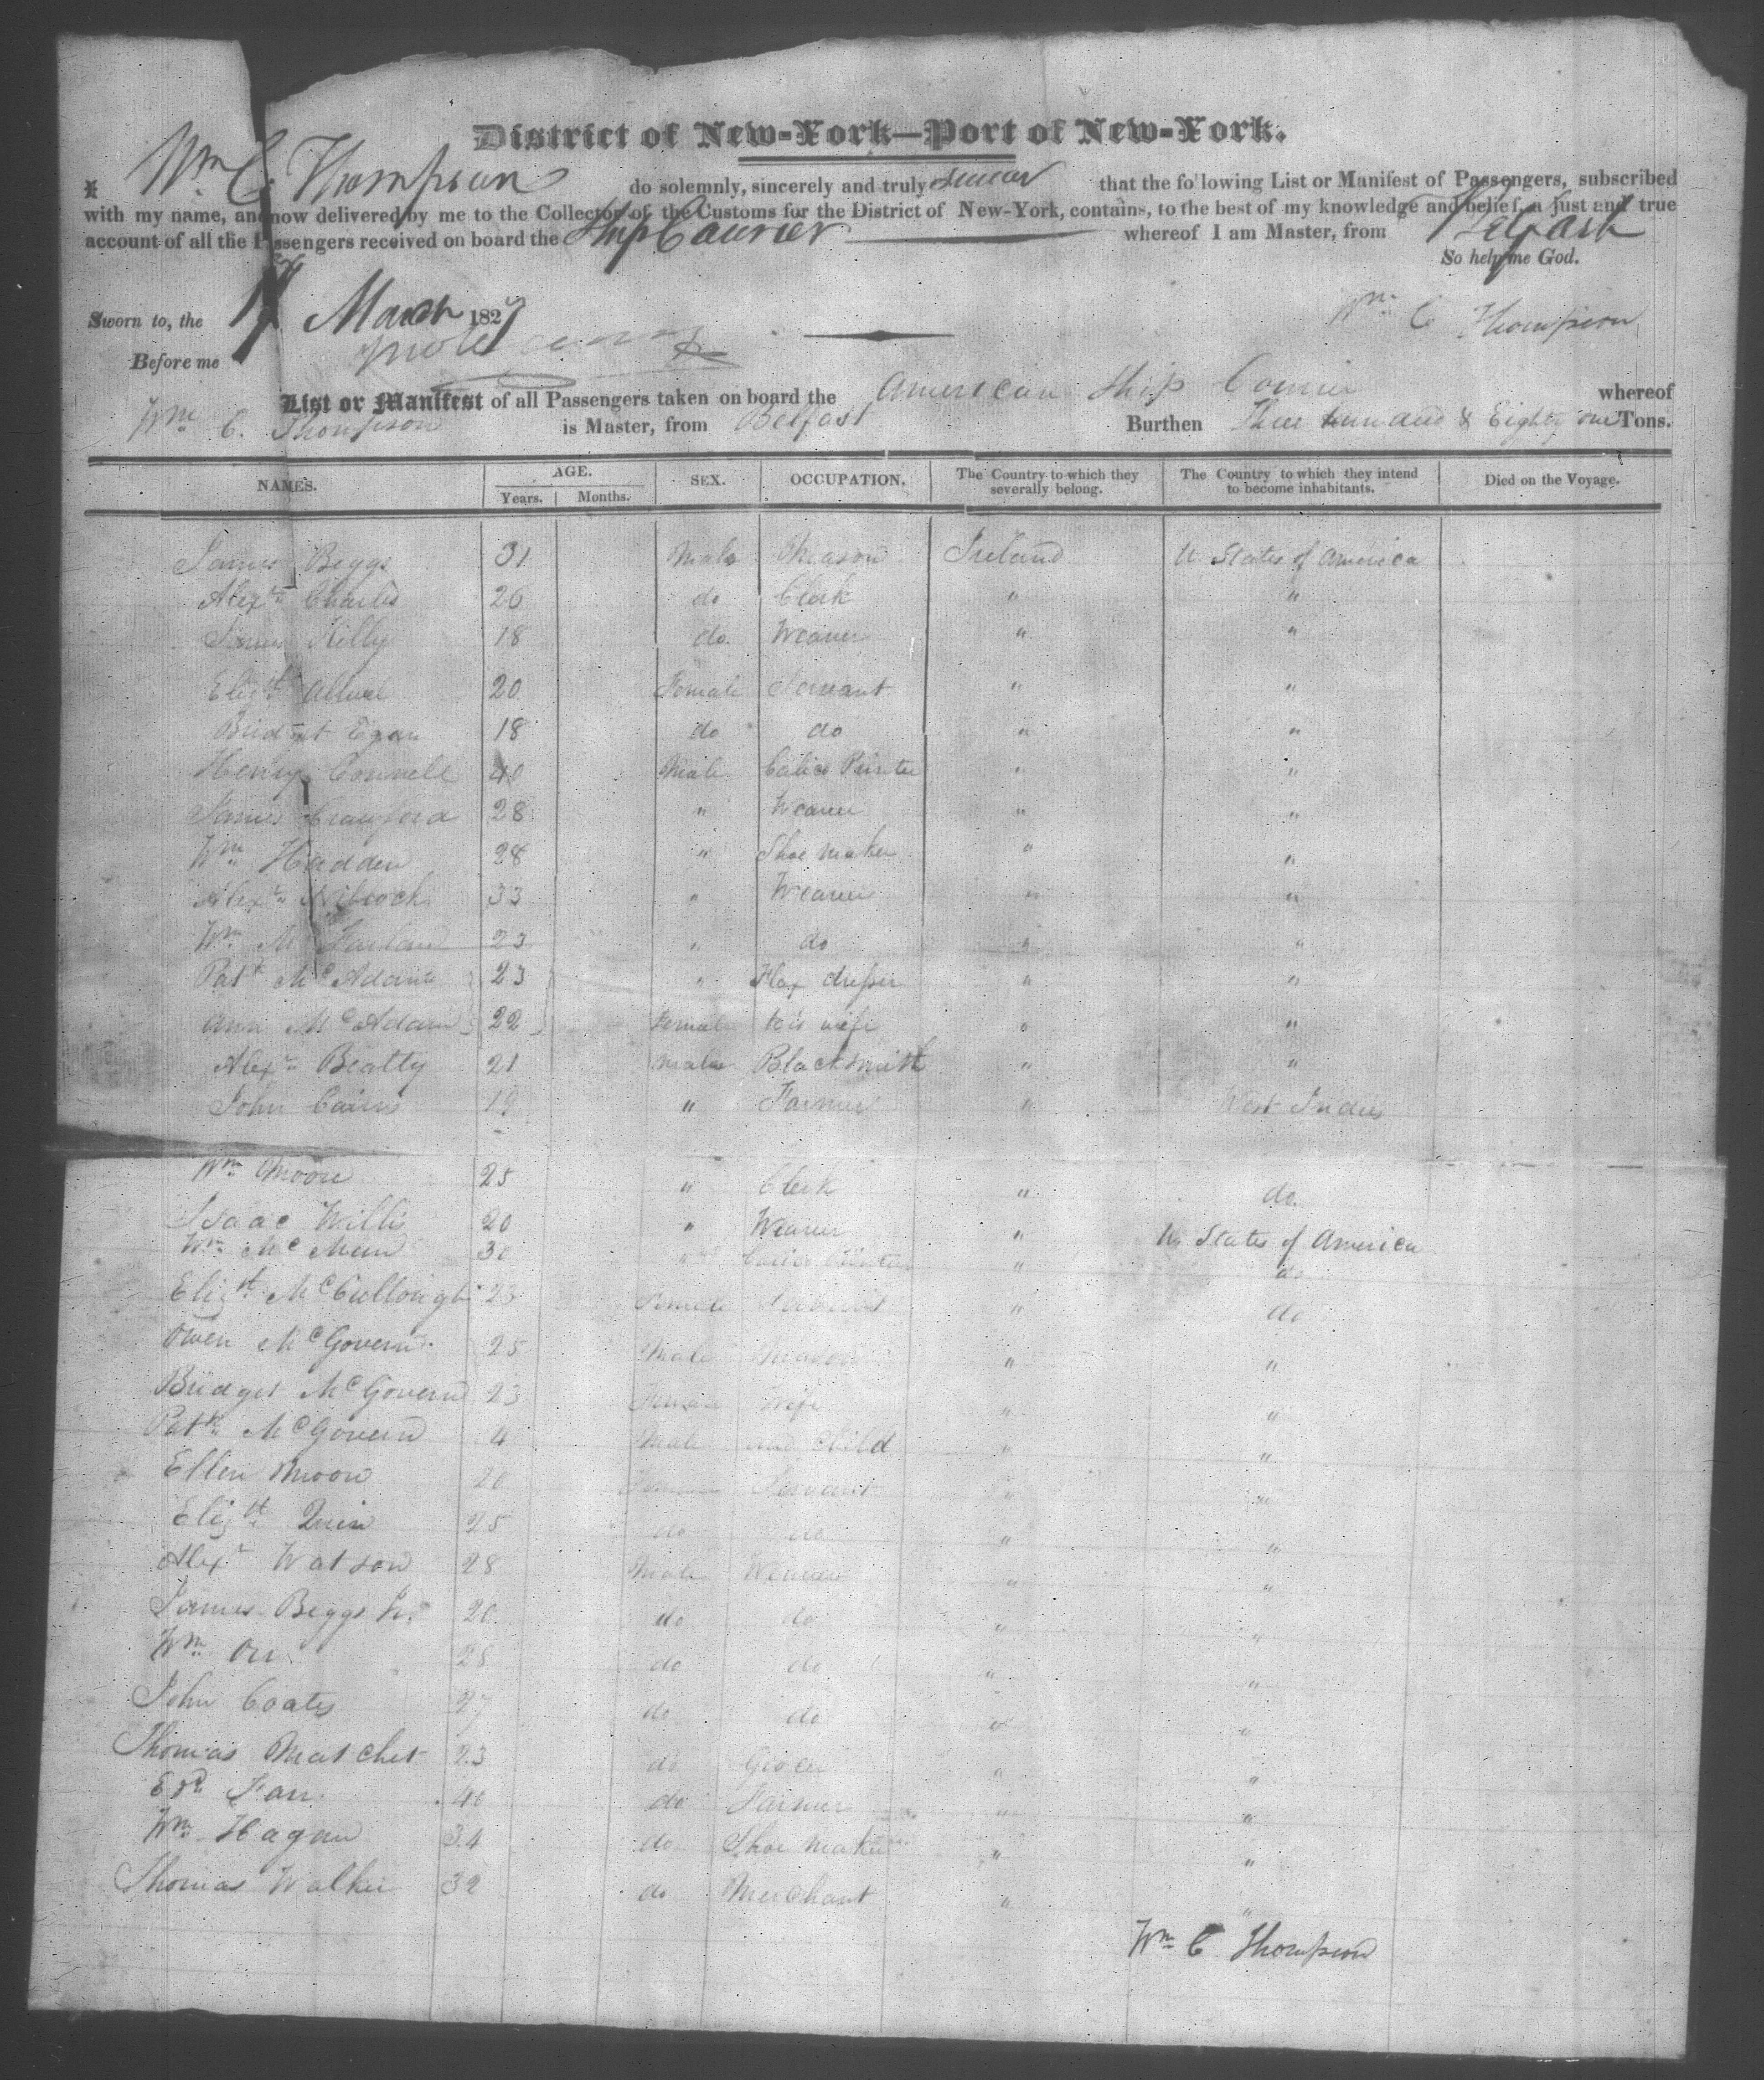 District of New-York—Port of New-York.
I Wm C. Thompson do solemnly, sincerely and truly swear that the following List or Manifest of Passengers, subscribed
with my name, and now delivered by me to the Collector of the Customs for the District of New-York, contains, to the best of my knowledge and belief, a just and true
account of all the Passengers received on board the Ship Courier whereof I am Master, from Belfast
So help me God.
Sworn to, the March 1827
Wm C Thompson
Before me
List or Manifest of all Passengers taken on board the American Ship Courier whereof
Wm C. Thompson is Master, from Belfast Burthen Three hundred & Eighty one Tons.
NAMES. AGE. Years. Months. SEX. OCCUPATION. The Country to which they severally belong. The Country to which they intend to become inhabitants. Died on the Voyage.
James Beggs 31 Male Mason Ireland U States of America
Alexr Charles 26 do Clerk " "
James Kelly 18 do. Weaver " "
Elizth 20 Female Servant " "
Bridget Egan 18 do do " "
Henry Connell 40 Male Calico Printer " "
James Crawford 28 " Weaver " "
Wm Hadden 28 " Shoe maker " "
Alexr 33 " Weaver " "
Wm McFarland 23 " do " "
Patk McAdam 23 " Flax dresser " "
Ann McAdam 22 Female his wife " "
Alexr Beatty 21 Male Blacksmith " "
John Cairns 19 " Farmer " West Indies
Wm Moore 25 " Clerk " do.
Isaac Willis 20 " Weaver " U States of America
Wm McMeen 30 " Calico Printer " do
Elizth McCullough 23 Female Servant " do
Owen McGovern 25 Male Mason " "
Bridget McGovern 23 Female Wife " "
Patk McGovern 4 Male and Child " "
Ellen Moore 20 Female Servant " "
Elizth Quin 25 do do " "
Alexr Watson 28 Male Weaver " "
James Beggs Jr. 20 do do " "
Wm Orr 28 do do " "
John Coates 27 do do " "
Thomas Matchet 23 do Grocer " "
Farr 40 do Farmer " "
Wm Hagan 34 do Shoe maker " "
Thomas Walker 32 do Merchant " "
Wm C Thompson